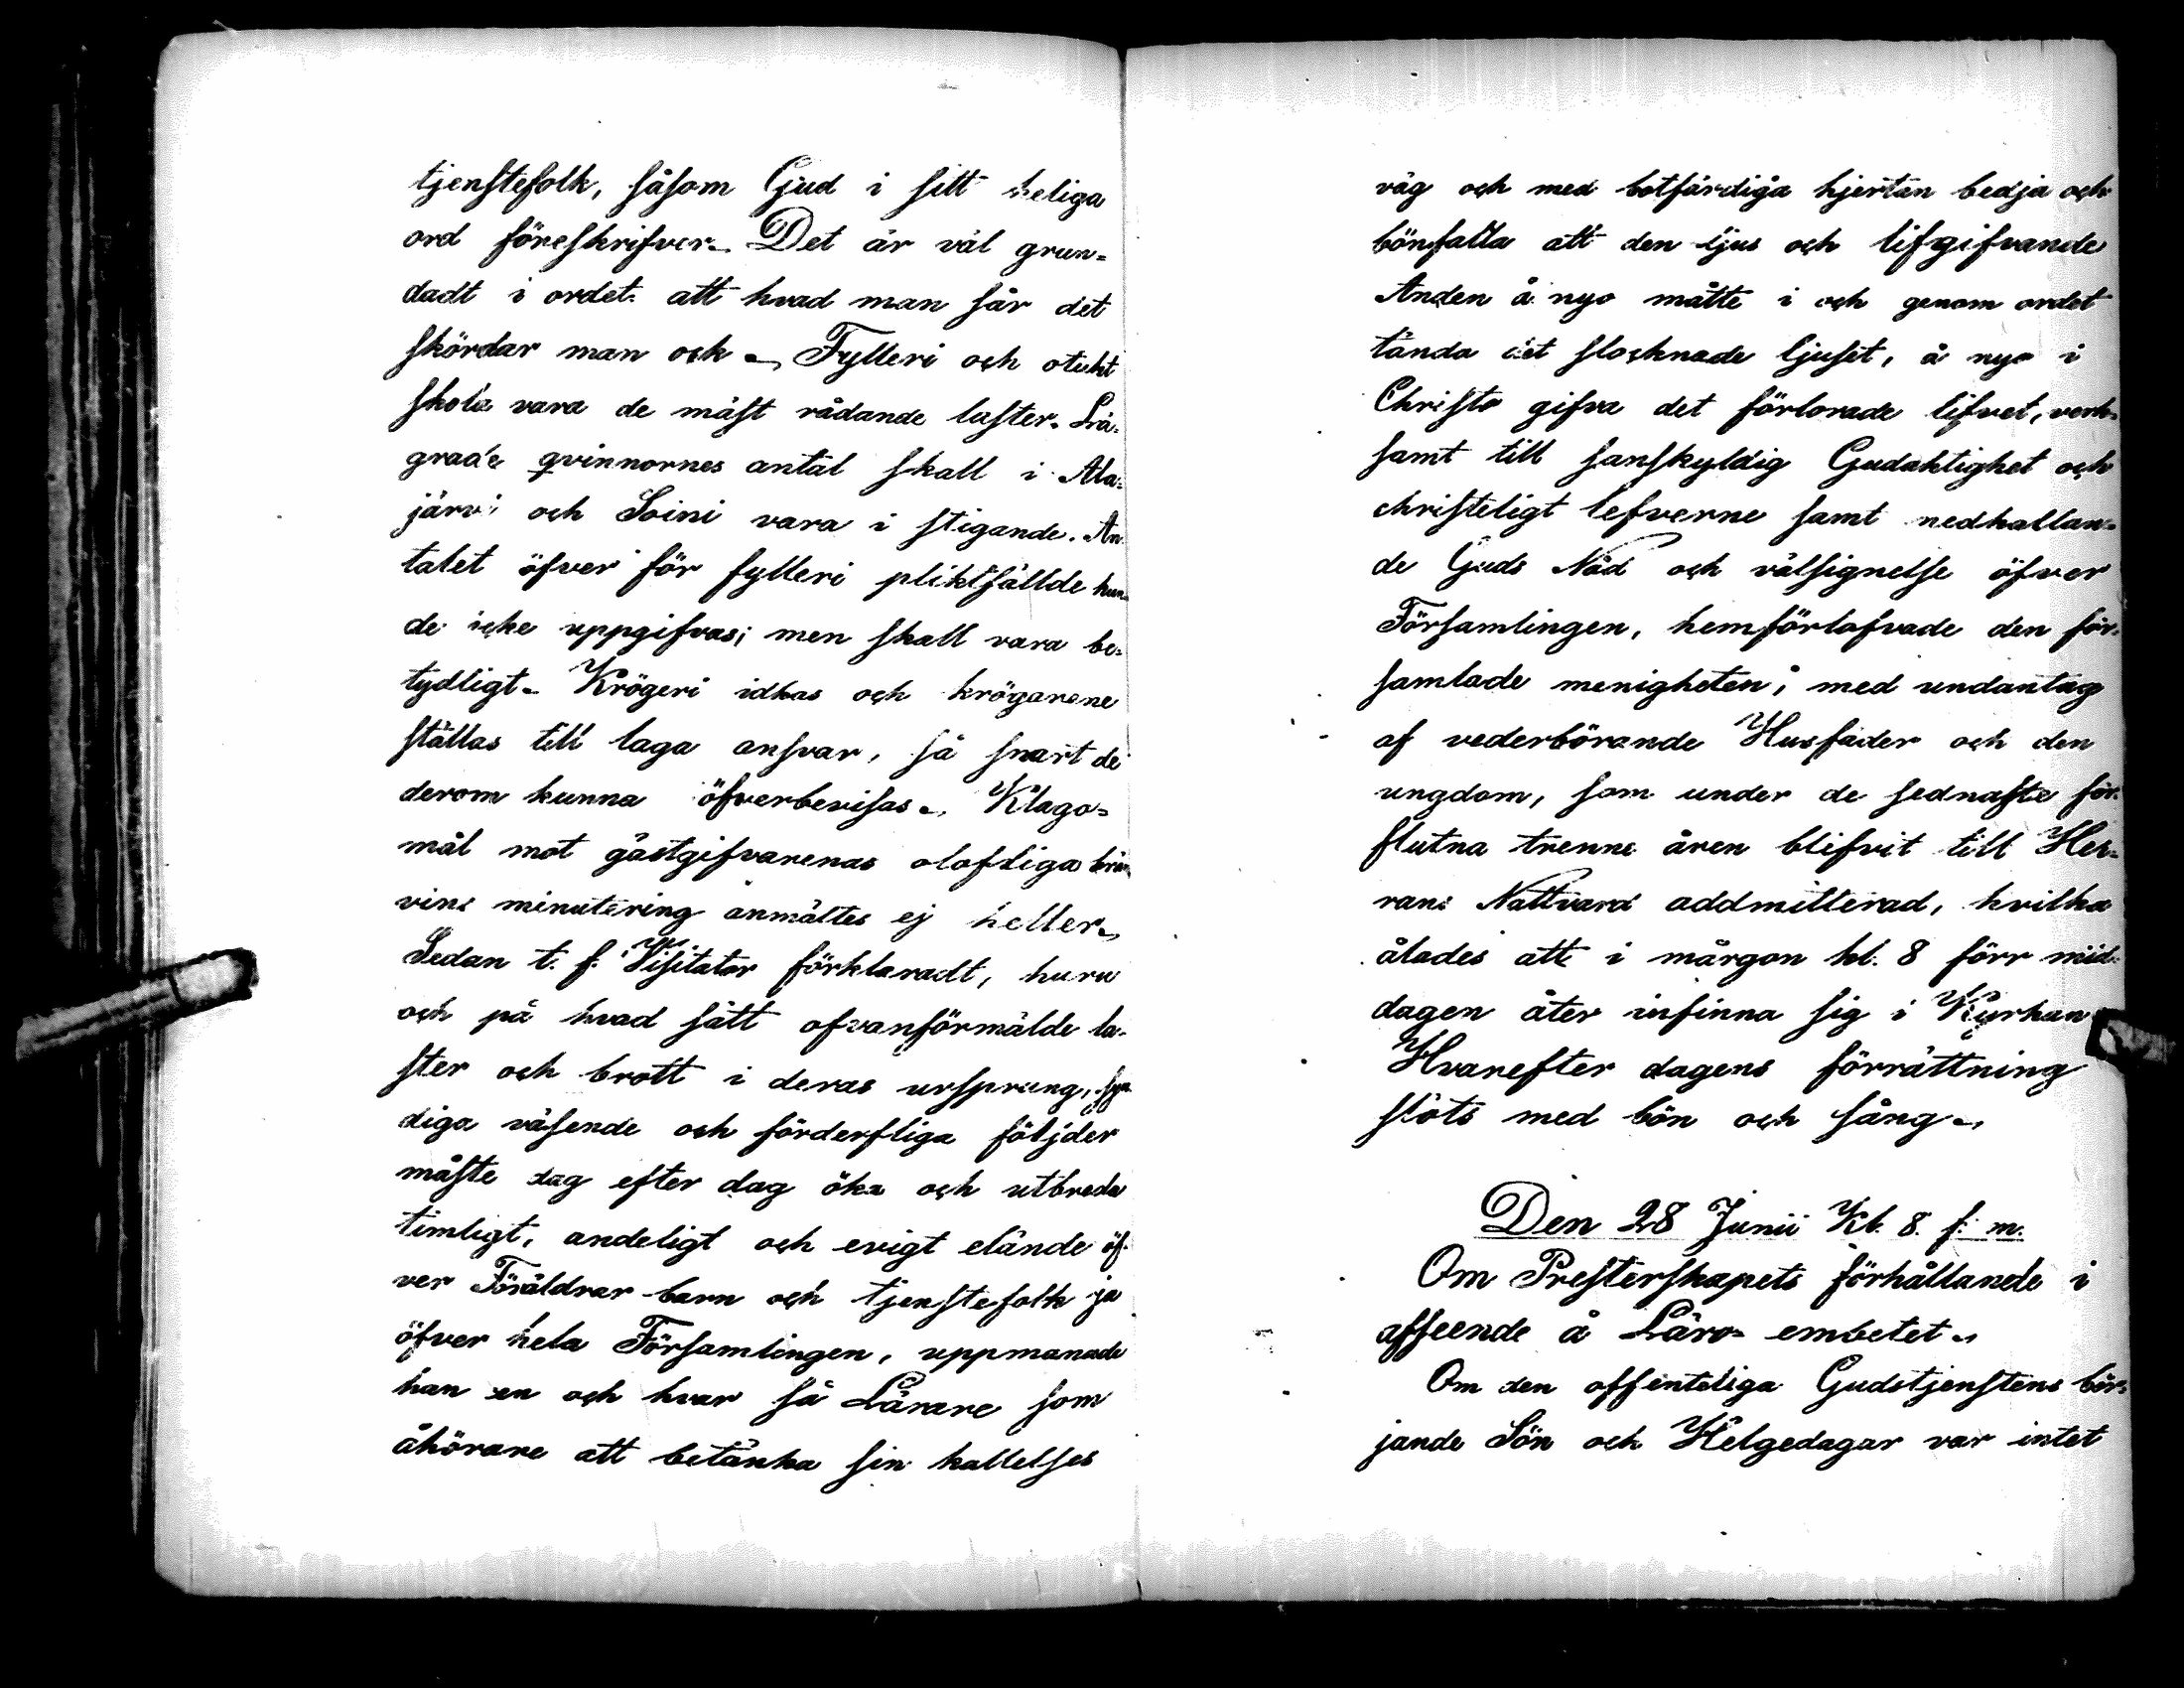 tjenstefolk, såsom Gud i sitt heliga
ord föreskrifver. Det är väl grun-
dadt i ordet att hvad man sår det
skördar man ock. Fylleri och otukt
skola vara de mäst rådande laster. Lä-
grade qvinnornes antal skall i Ala-
järvi och Soini vara i stigande. An-
talet öfver för fylleri pliktfällde kun-
de icke uppgifvas; men skall vara be-
tydligt. Krögeri idkas och krögarene
ställas till laga ansvar, så snart de
derom kunna öfverbevisas. Klago-
mål mot gästgifvarenas olofliga brän-
vins minutering anmältes ej heller.
Sedan t. f. Visitator förklaradt, huru
och på hvad sätt ofvanförmälde la-
ster och brott i deras ursprung, syn-
diga väsende och förderfliga följder
måste dag efter dag öka och utbreda
timligt, andeligt och evigt elände öf-
ver Föräldrar barn och tjenstefolk ja
öfver hela Församlingen, uppmanade
han en och hvar så Lärare som
åhörare att betänka sin kallelses
väg och med botfärdiga hjertan bedja och
bönfalla att den ljus och lifgifvande
Anden å nyo måtte i och genom ordet
tända det slocknade ljuset, å nyo i
Christo gifva det förlorade lifvet, verk-
samt till sanskyldig Gudaktighet och
christeligt lefverne samt nedkallan-
de Guds Nåd och välsignelse öfver
Församlingen, hemförlofvade den för-
samlade menigheten, med undantag
af vederbörande Husfäder och den
ungdom, som under de sednaste för-
flutna trenne åren blifvit till Her-
rans Nattvard addmitterad, hvilka
ålades att i mårgon kl. 8 förr mid-
dagen åter infinna sig i Kyrkan
Hvarefter dagens förrättning
slöts med bön och sång.
Den 28 Junii Kl. 8. f. m.
Om Presterskapets förhållande i
afseende å Läro-embetet.
Om den offenteliga Gudstjenstens bör-
jande Sön och Helgedagar var intet